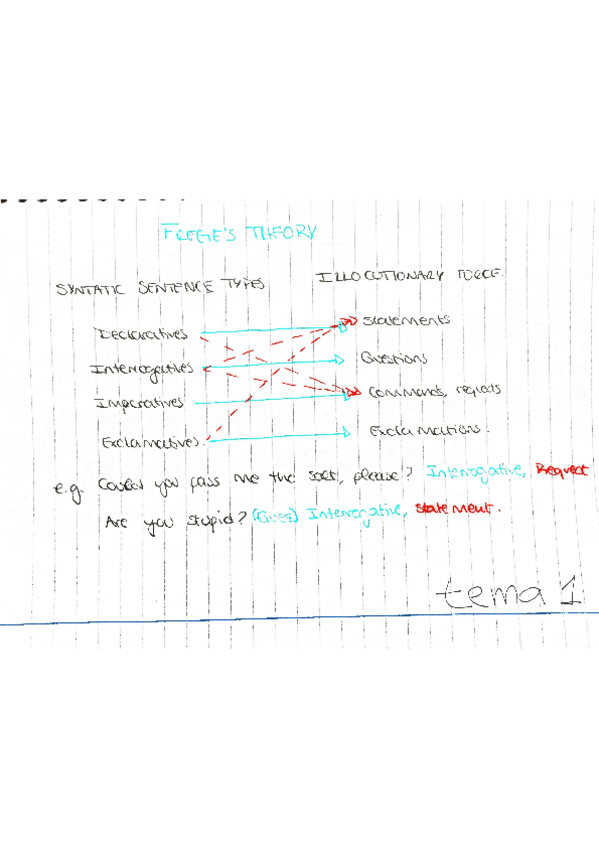 FREGE'S THEORY
SYNTATIC SENTENCE TYPES
ILLOCUTIONARY FORCE.
Declaratives
statements
Interrogatives
Questions
Imperatives
Commands, requests
Exclamatives
Exclamations.
e.g. Could you pass me the salt, please? Interrogative, Request
Are you stupid? Interrogative, statement.
tema 1